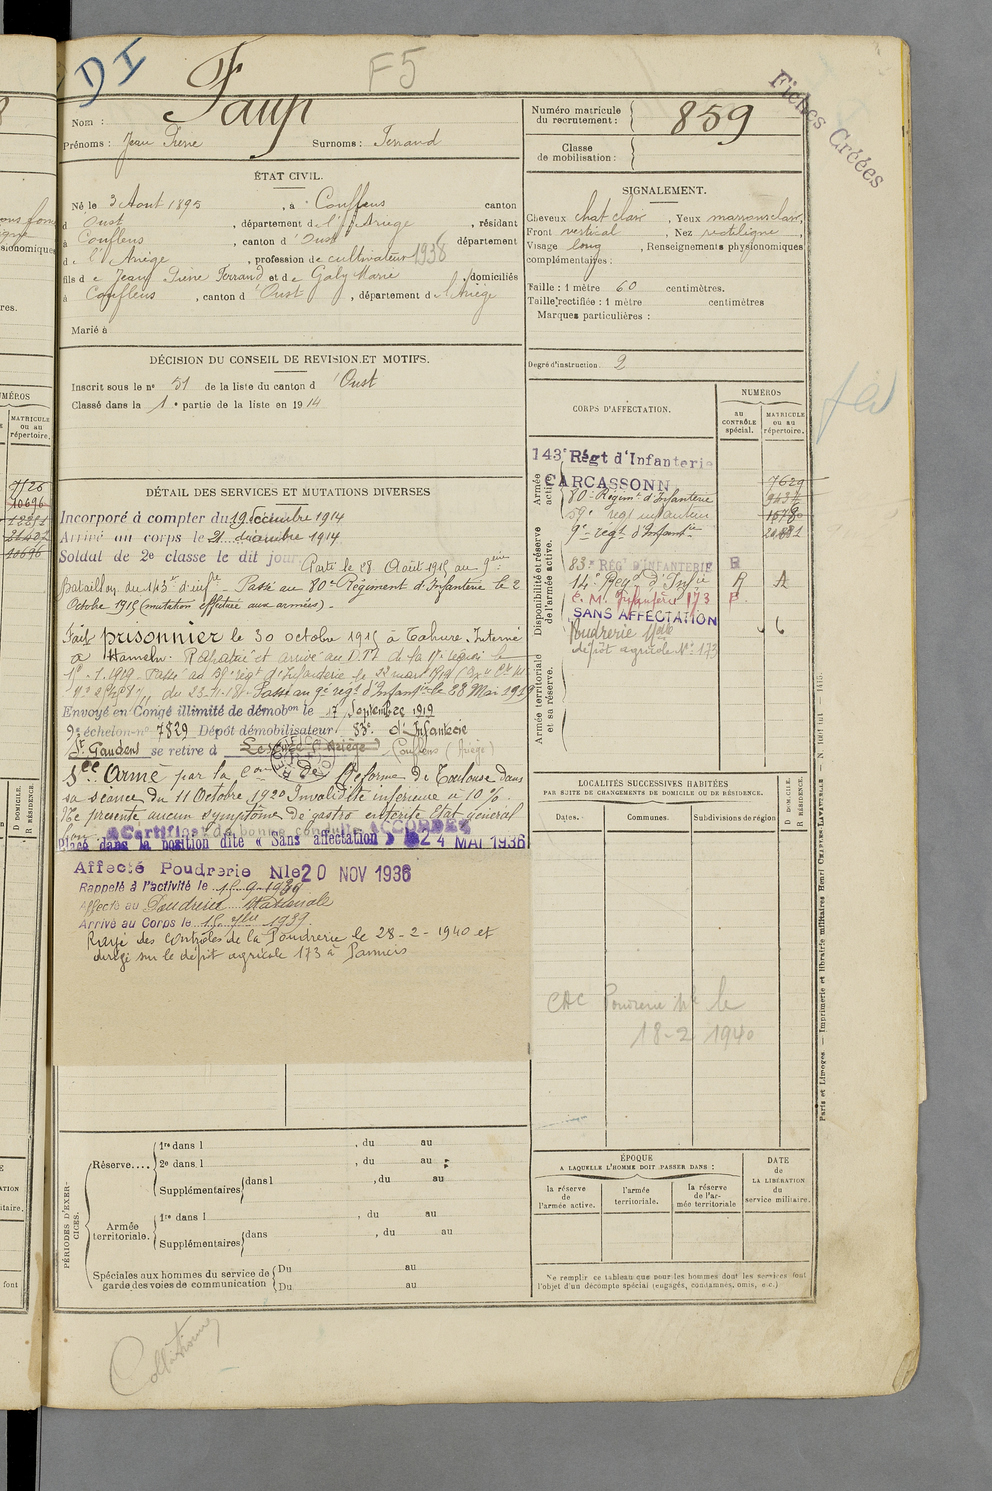 DI
F5
Faup
Nom :
Prénoms : Jean Pierre Surnoms : Ferrand
ÉTAT CIVIL.
Né le 3 Aout 1895, à Couflens canton
d'Oust, département de l'Ariège, résidant
à Couflens, canton d'Oust département
de l'Ariège, profession de cultivateur 1938
fils de Jean Pierre Ferrand et de Galy Marie, domiciliés
à Couflens, canton d'Oust, département de l'Ariège
Marié à
DÉCISION DU CONSEIL DE REVISION ET MOTIFS.
Inscrit sous le no 51 de la liste du canton d'Oust
Classé dans la 1e partie de la liste en 1914
DÉTAIL DES SERVICES ET MUTATIONS DIVERSES
Incorporé à compter du 19 décembre 1914
Arrivé au corps le 21 décembre 1914
Soldat de 2e classe le dit jour Parti le 28 Août 1915 au 9ème
Bataillon du 143e d'infie Passé au 80e Régiment d'Infanterie le 2
Octobre 1915 (mutation effectuée aux armées).
Fait prisonnier le 30 octobre 1915 à Tahure. Interné
à Hameln. Rapatrié et arrivé au D.T. de la 17e région le
1919 Passé au 59e régt d'Infanterie le 2 mars 1919
du 23-11-18. Passé au 9e régt d'Infantie le 28 Mai 1919
Envoyé en Congé illimité de démobon le 17 Septembre 1919
9e échelon no 7829 Dépôt démobilisateur 83e d'Infanterie
St Gaudens se retire à Couflens (Ariège)
Sce Armé par la Con de Réforme de Toulouse dans
sa séance du 11 Octobre 1920 Invalidité inférieure à 10 %.
Ne présente aucun symptôme de gastro entérite Etat général
bon Certificat de bonne conduite ACCORDÉ
Placé dans la position dite « Sans affectation » le 24 MAI 1936
Affecté Poudrerie Nle 20 NOV 1936
Rappelé à l'activité le
Affecté au Poudrerie Nationale
Arrivé au Corps le 15 7bre 1939.
Rayé des contrôles de la Poudrerie le 28-2-1940 et
dirigé sur le dépôt agricole 173 à Pamiers
PÉRIODES D'EXERCICES.
Réserve....
1re dans l , du au
2e dans l , du au
Supplémentaires dans l , du au
Armée territoriale.
1re dans l , du au
Supplémentaires dans , du au
Spéciales aux hommes du service de garde des voies de communication
Du au
Du au
Collationné
Numéro matricule du recrutement : 859
Classe de mobilisation :
Fiches Créées
SIGNALEMENT.
Cheveux chat clair, Yeux marrons clair,
Front vertical, Nez rectiligne,
Visage long, Renseignements physionomiques
complémentaires :
Taille : 1 mètre 60 centimètres.
Taille rectifiée : 1 mètre centimètres
Marques particulières :
Degré d'instruction. 2
CORPS D'AFFECTATION.
NUMÉROS
au CONTRÔLE spécial.
MATRICULE ou au répertoire.
Armée active.
143e Régt d'Infanterie
CARCASSONN 7629
80e Régimt d'Infanterie
59e régt infanterie
9e régt d'Infantie
Disponibilité et réserve de l'armée active.
83e RÉGt D'INFANTERIE R
14e Régt d'Infie R A
C. M. Infanterie 173 P.
SANS AFFECTATION
Poudrerie Nale 6
dépôt agricole No 173
Armée territoriale et sa réserve.
LOCALITÉS SUCCESSIVES HABITÉES
PAR SUITE DE CHANGEMENTS DE DOMICILE OU DE RÉSIDENCE.
Dates. Communes. Subdivisions de région D DOMICILE. R RÉSIDENCE.
CAC Poudrerie Nle le
18-2 1940
ÉPOQUE
A LAQUELLE L'HOMME DOIT PASSER DANS :
la réserve de l'armée active.
l'armée territoriale.
la réserve de l'armée territoriale
DATE de LA LIBÉRATION du service militaire.
Ne remplir ce tableau que pour les hommes dont les services font
l'objet d'un décompte spécial (engagés, condamnés, omis, etc.)
Paris et Limoges. — Imprimerie et librairie militaires Henri CHARLES-LAVAUZELLE.